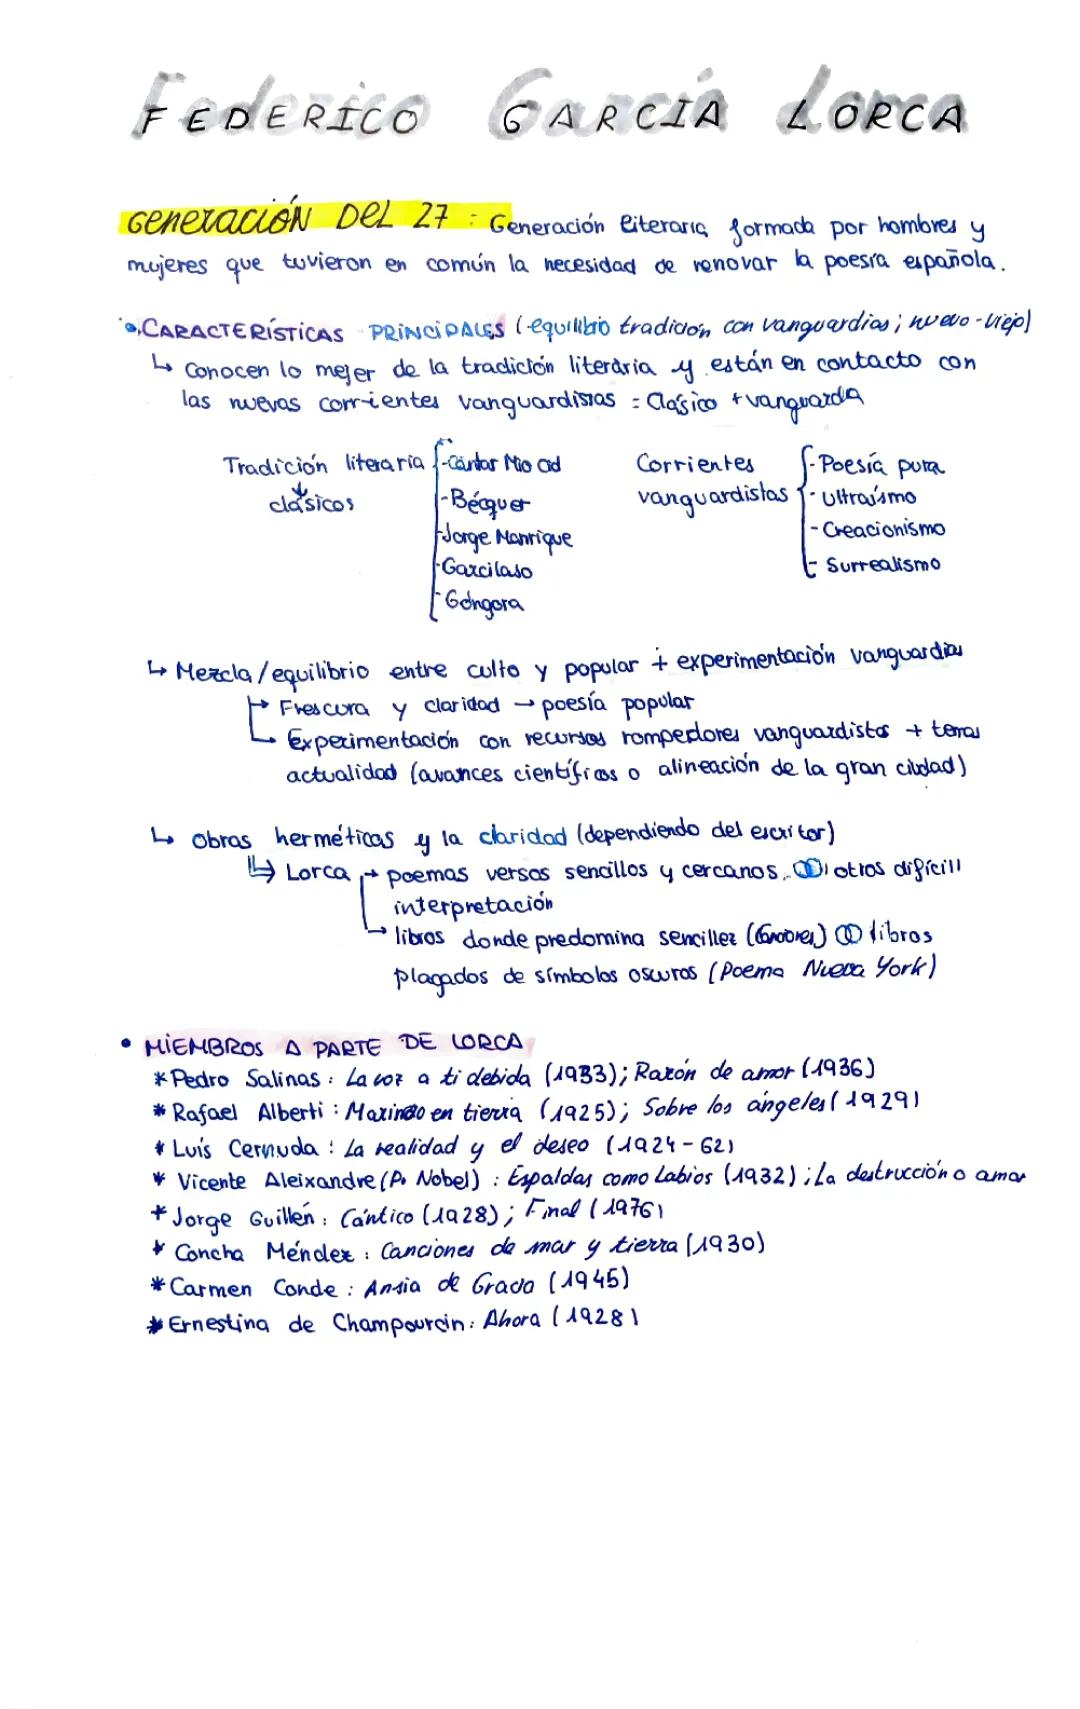 FEDERICO GARCÍA LORCA
GENERACIÓN DEL 27 : Generación literaria formada por hombres y
mujeres que tuvieron en común la necesidad de renovar la poesía española.
• CARACTERÍSTICAS PRINCIPALES (equilibrio tradición con vanguardias; nuevo-viejo)
↳ Conocen lo mejer de la tradición literaria y están en contacto con
las nuevas corrientes vanguardistas = Clásico + vanguarda
Tradición literaria
↓
clásicos
- Cantar Mio Cid
- Bécquer
- Jorge Manrique
- Garcilaso
- Góngora
Corrientes
vanguardistas
- Poesía pura
- Ultraísmo
- Creacionismo
- Surrealismo
↳ Mezcla/equilibrio entre culto y popular + experimentación vanguardias
↳ Frescura y claridad → poesía popular
↳ Experimentación con recursos rompedores vanguardistas + temas
actualidad (avances científicos o alineación de la gran ciudad)
↳ Obras herméticas y la claridad (dependiendo del escritor)
↳ Lorca → poemas versos sencillos y cercanos, otros difícil
interpretación
→ libros donde predomina sencillez (Canciones) libros
plagados de símbolos oscuros (Poema Nueva York)
• MIEMBROS A PARTE DE LORCA
* Pedro Salinas : La voz a ti debida (1933); Razón de amor (1936)
* Rafael Alberti : Marinero en tierra (1925); Sobre los ángeles (1929)
* Luís Cernuda : La realidad y el deseo (1924-62)
* Vicente Aleixandre (P. Nobel) : Espaldas como Labios (1932) ; La destrucción o amor
* Jorge Guillén : Cántico (1928) ; Final (1976)
* Concha Méndez : Canciones de mar y tierra (1930)
* Carmen Conde : Ansia de Gracia (1945)
* Ernestina de Champourcin : Ahora (1928)